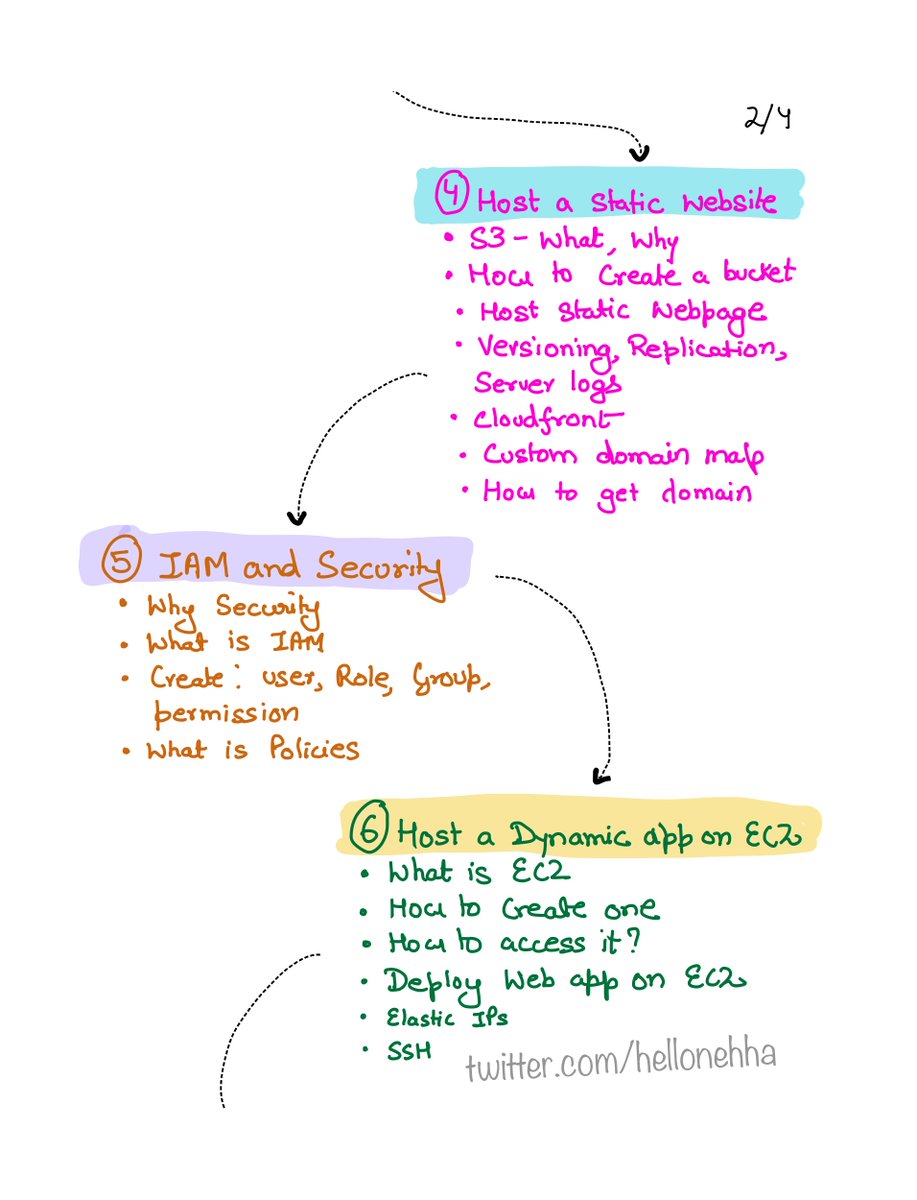 2/4
④ Host a Static Website
• S3 - What, Why
• How to Create a bucket
• Host Static Webpage
• Versioning, Replication,
Server logs
• Cloudfront
• Custom domain map
• How to get domain
⑤ IAM and Security
• Why Security
• What is IAM
• Create: user, Role, Group,
permission
• What is Policies
⑥ Host a Dynamic app on EC2
• What is EC2
• How to Create one
• How to access it?
• Deploy Web app on EC2
• Elastic IPs
• SSH
twitter.com/hellonehha